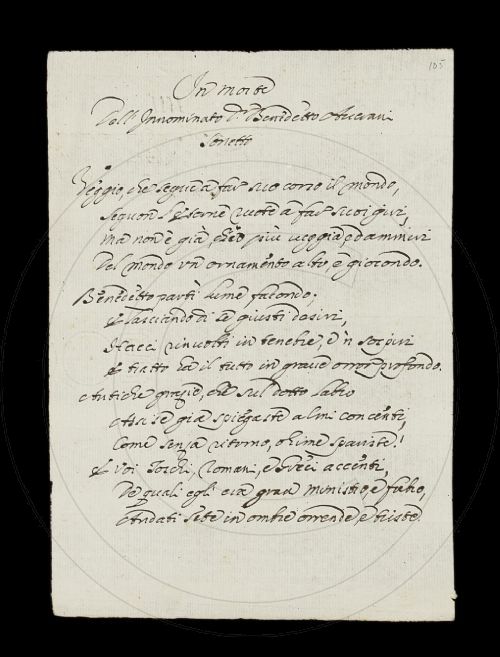 105
In morte
Dell' Innominato Dr. Benedetto Averani
Sonetto
Veggio, che segue a far suo corso il mondo,
Seguon l'eterne ruote a far suoi giri,
ma non è già che più veggia, ed ammiri
Del mondo un ornamento alto, e giocondo.
Benedetto partì lume facondo;
E lasciando a se giusti desiri,
involti in tenebre, e 'n sospiri
E tratto ha il tutto in grave orror profondo.
Antiche grazie, che sul dotto labro
Assise già spiegaste almi concenti,
Come senza ritorno, ohime spariste!
E voi Toschi, Romani, e Greci accenti,
De quali egli era gran ministro, e fabro,
Andati sete in ombre orrende, e triste.